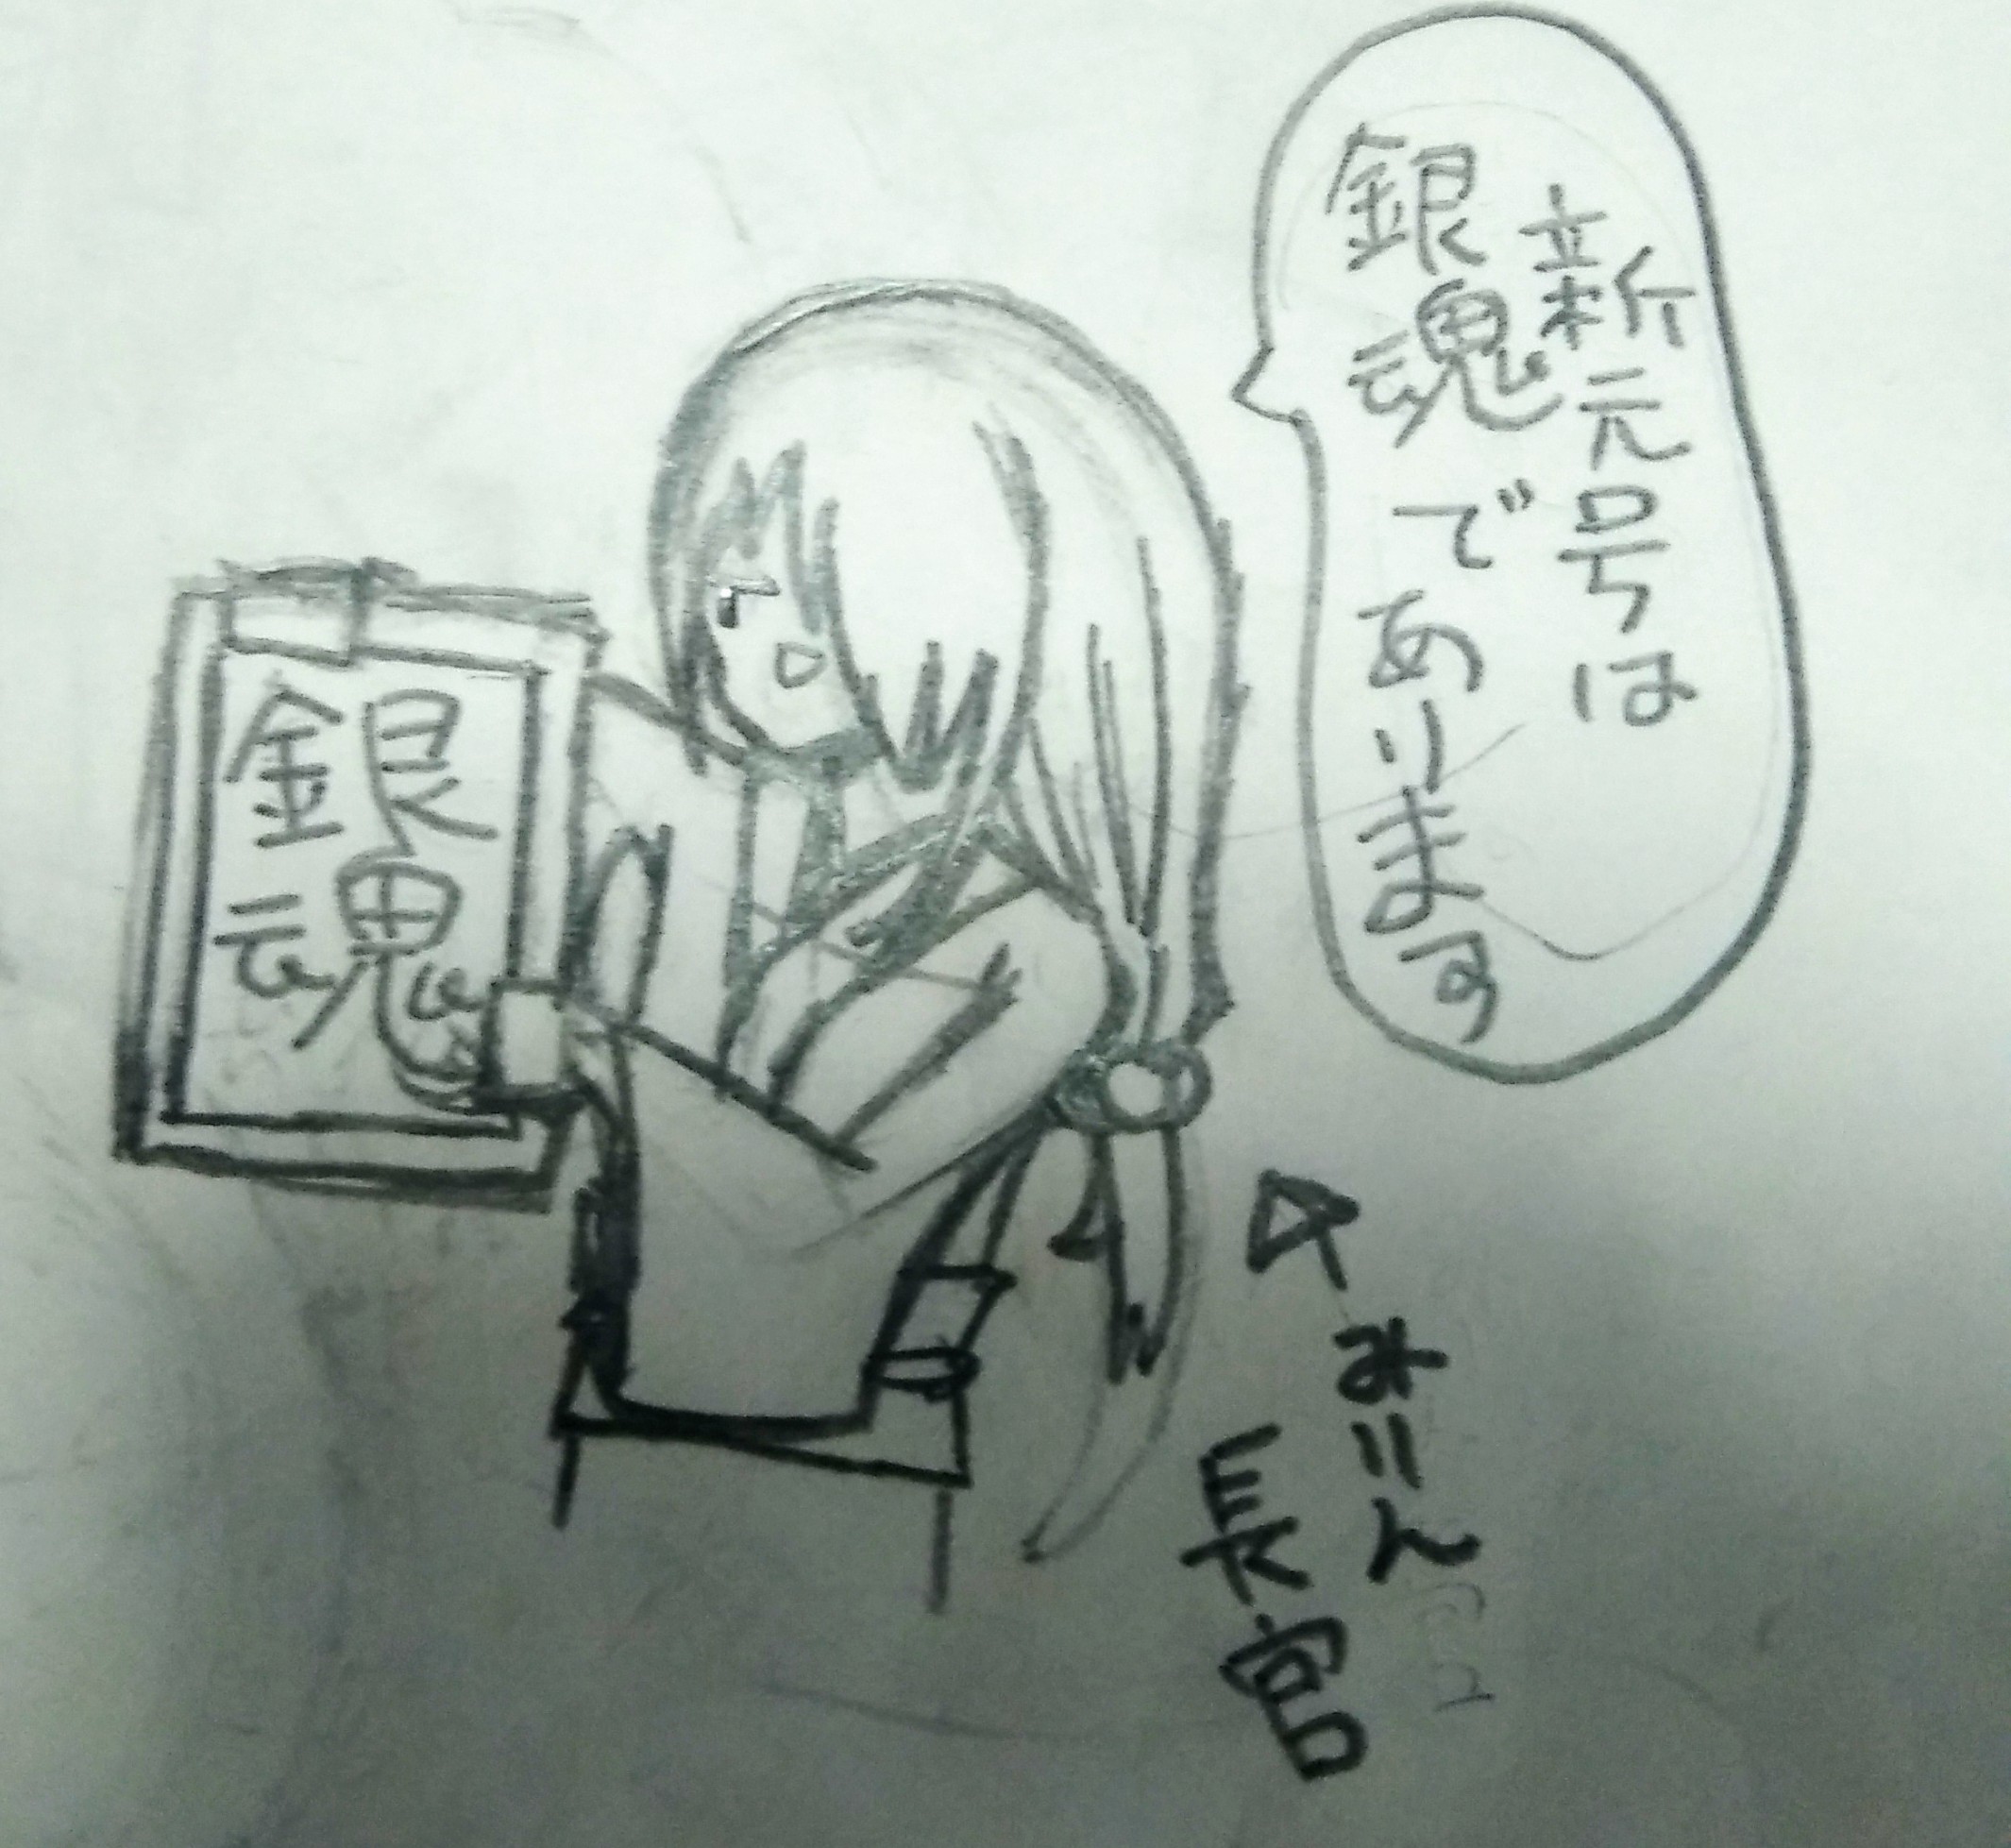 新元号は
銀魂であります
銀魂
みりん
長官